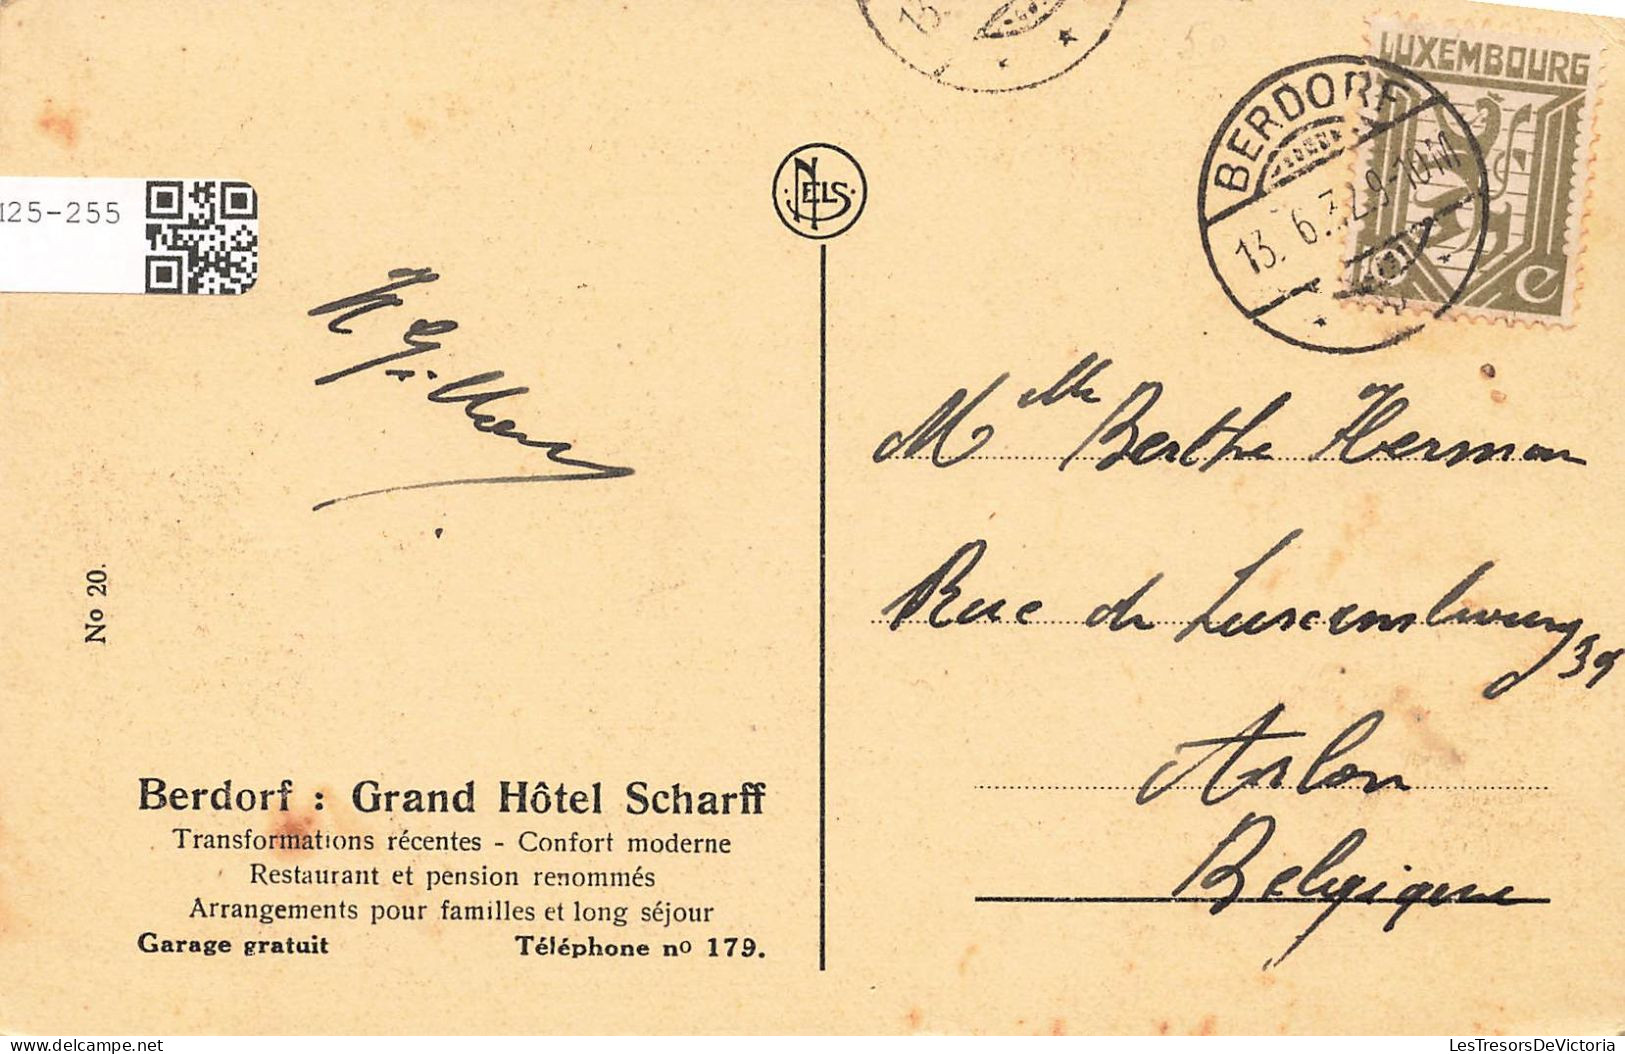 LUXEMBOURG
BERDORF
13. 6.32.9-10M
e
NELS
125-255
Mlle Berthe Herman
Rue de Luxembourg
39
Arlon
Belgique
No 20.
Berdorf : Grand Hôtel Scharff
Transformations récentes - Confort moderne
Restaurant et pension renommés
Arrangements pour familles et long séjour
Garage gratuit Téléphone no 179.
LesTresorsDeVictoria